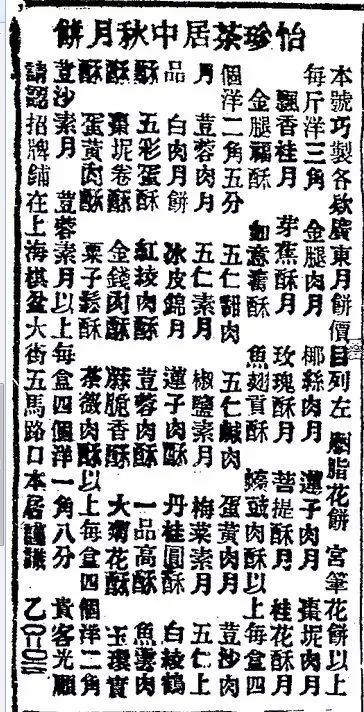 怡珍茶居中秋月餅
本號巧製各欵廣東月餅價目列左 胭脂花餅 宮筆花餅以上
每斤洋三角 金腿肉月 椰絲肉月 蓮子肉月 棗坭肉月
飄香桂月 芽蕉酥月 玫瑰酥月 菩提酥月 桂花酥月
金腿福酥 如意酥 魚翅貢酥 蠔豉肉酥以上每盒四
個洋二角五分 五仁甜肉 五仁鹹肉 蛋黃肉月 荳沙肉
月 荳蓉肉月 五仁素月 椒鹽素月 梅菜素月 五仁上
品 白肉月餅 冰皮錦月 蓮子肉酥 丹桂圓酥 白綾鶴
酥 五彩蛋酥 紅綾肉酥 荳蓉肉酥 一品高酥 魚雲肉
酥 棗坭卷酥 金錢肉酥 蔴脆香酥 大菊花酥 玉環寶
酥 蛋黃肉酥 栗子鬆酥 茶薇肉酥以上每盒四個洋二角
荳沙素月 荳蓉素月以上每盒四個洋一角八分 貴客光顧
請認招牌鋪在上海棋盆大街五馬路口本居謹識 乙